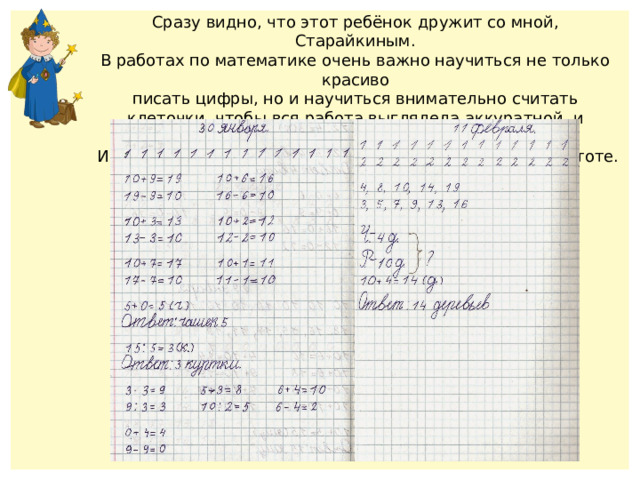 Сразу видно, что этот ребёнок дружит со мной,
Старайкиным.
В работах по математике очень важно научиться не только
красиво
писать цифры, но и научиться внимательно считать
клеточки, чтобы вся работа выглядела аккуратной и
И
тоте.
30 января
1 1 1 1 1 1 1 1 1 1 1 1 1 1
10+9=19 10+6=16
19-9=10 16-6=10
10+3=13 10+2=12
13-3=10 12-2=10
10+7=17 10+1=11
17-7=10 11-1=10
5+0=5 (ч.)
Ответ: чашек 5
15:5=3(к.)
Ответ: 3 куртки.
3·3=9 5+3=8 6+4=10
9:3=3 10:2=5 6-4=2
0+4=4
9-9=0
11 февраля.
1 1 1 1 1 1 1 1 1 1 1 1 1
2 2 2 2 2 2 2 2 2 2 2 2 2
4, 8, 10, 14, 19
3, 5, 7, 9, 13, 16
4 д.
Р-10 д. ?
10+4=14 (д.)
Ответ: 14 деревьев